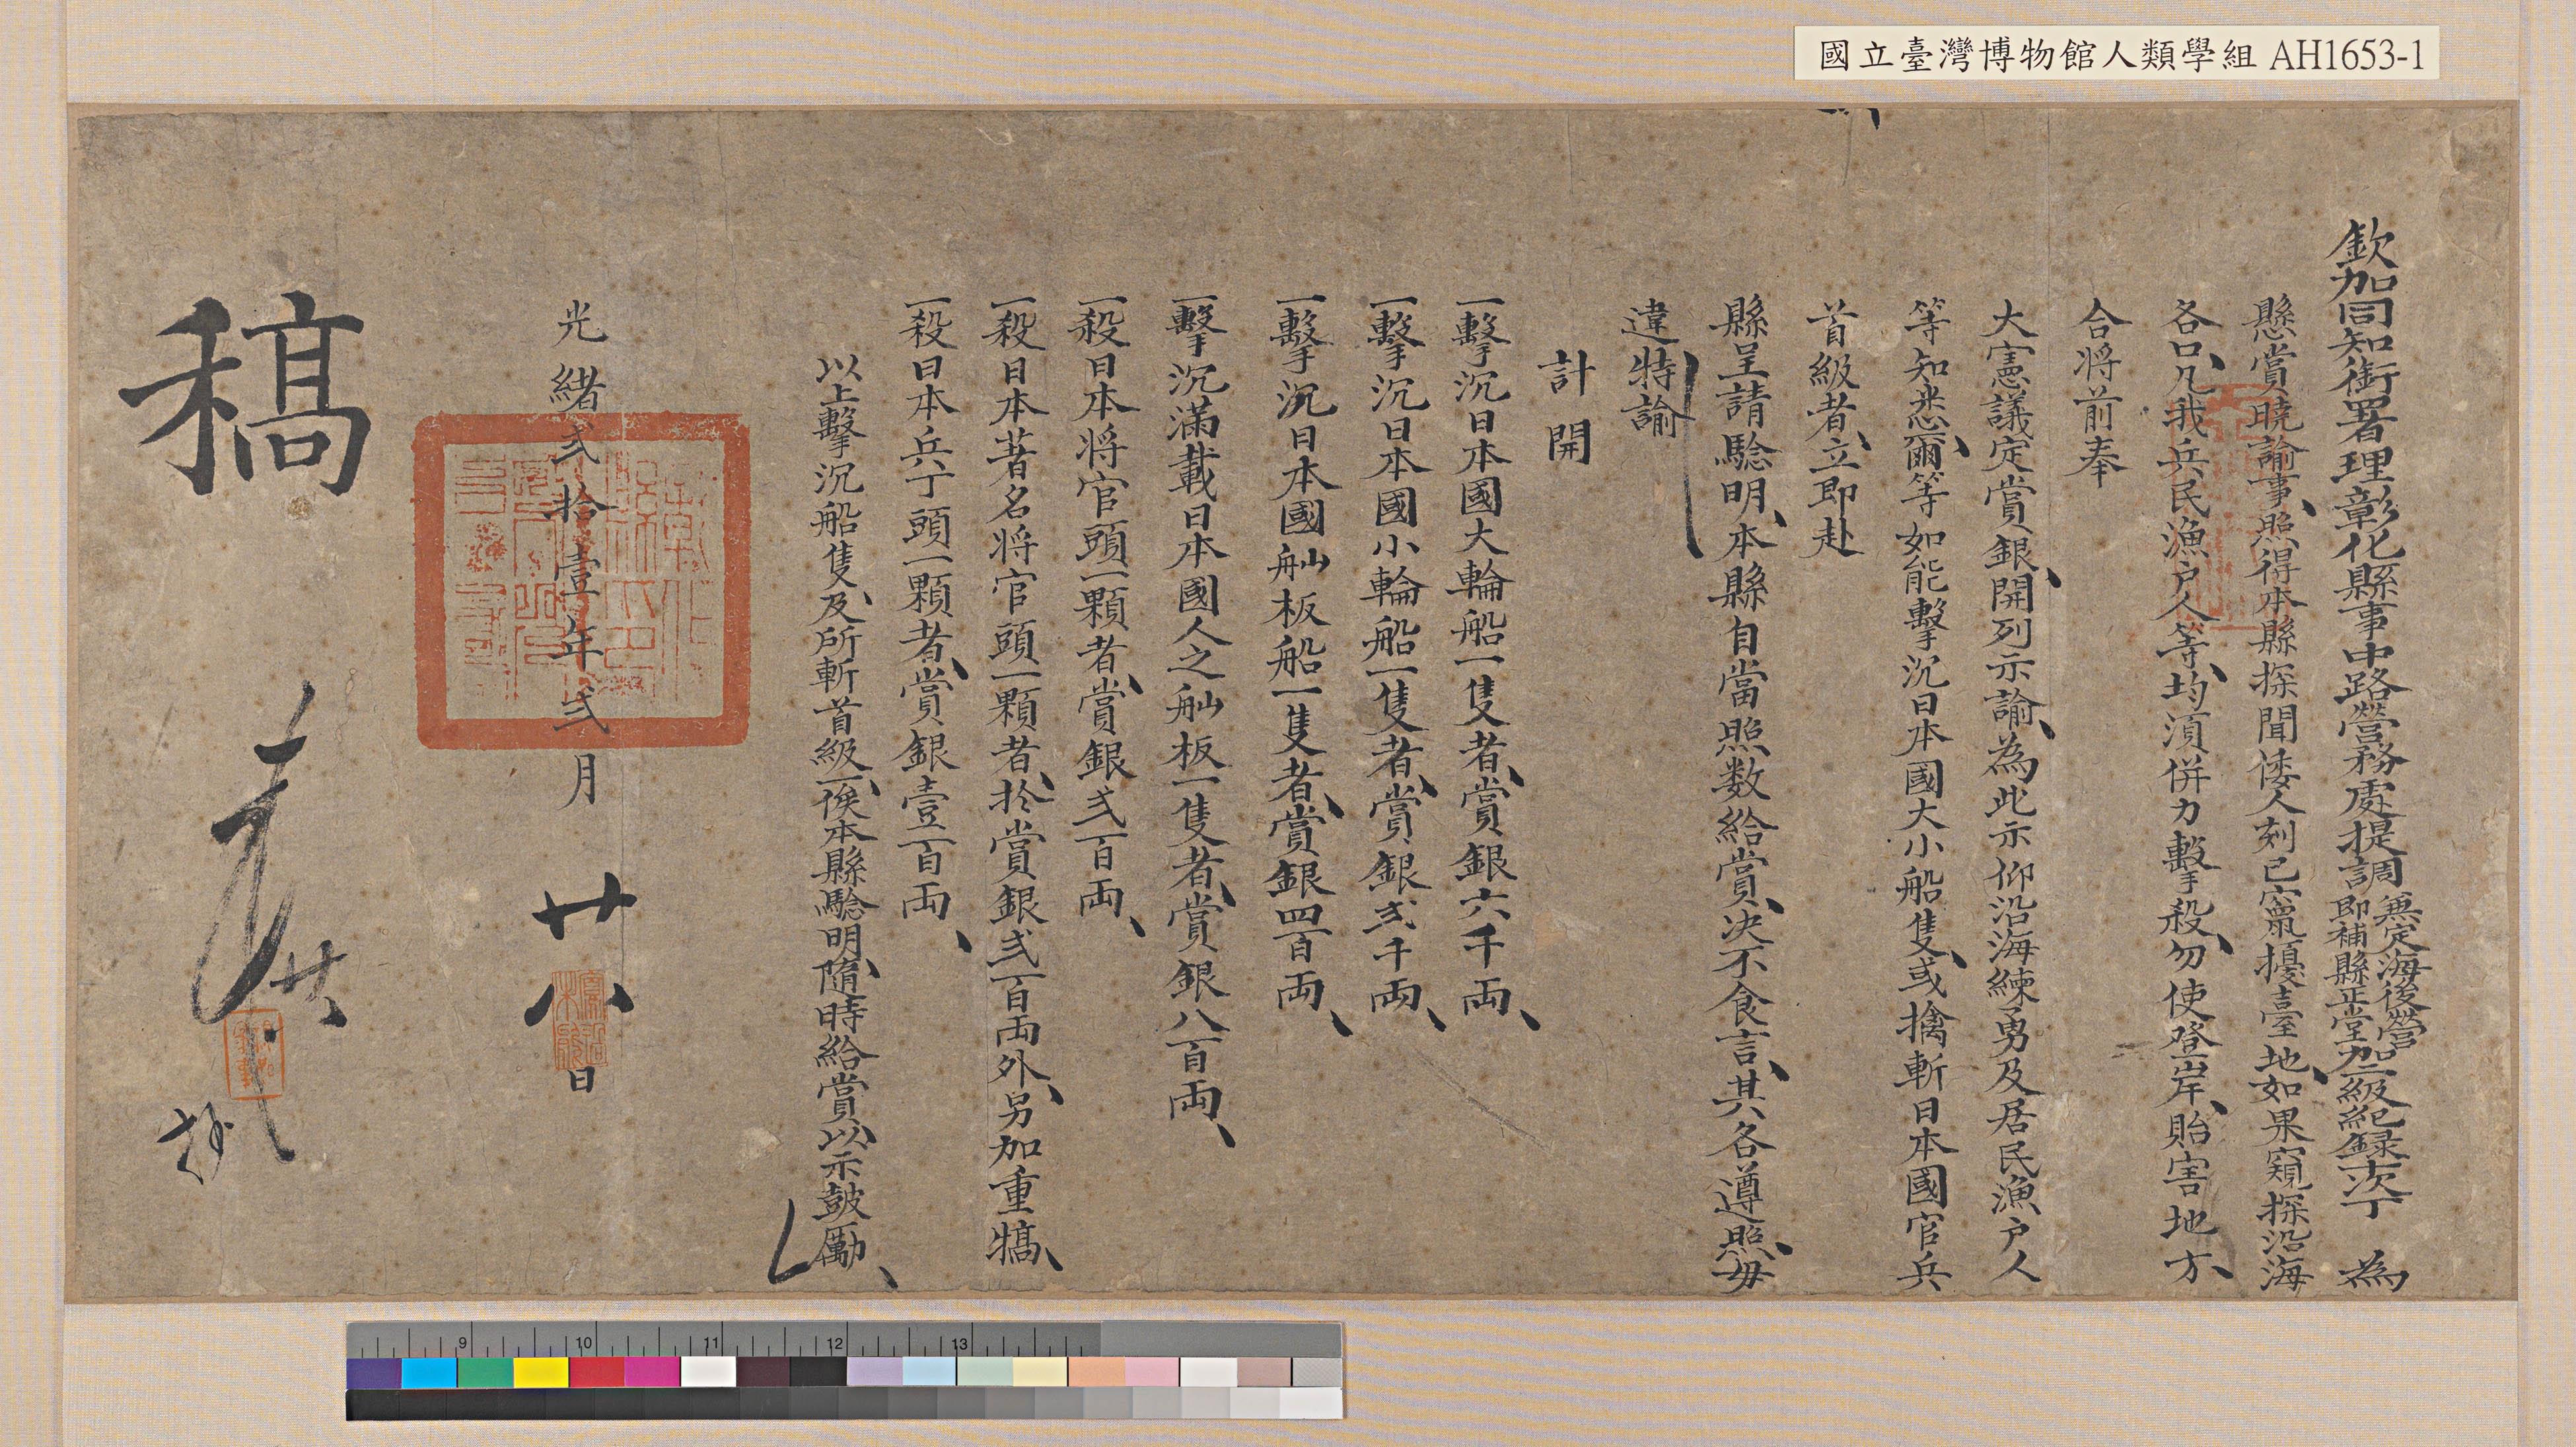 國立臺灣博物館人類學組 AH1653-1
欽加同知銜署理彰化縣事中路營務處提調兼定海後營即補縣正堂加二級紀錄次丁 為
懸賞曉諭事、照得本縣探聞倭人刻已竄擾臺地、如果窺探沿海
各口、凡我兵民漁户人等、均須併力擊殺、勿使登岸、貽害地方、
合將前奉
大憲議定賞銀、開列示諭、為此示仰沿海練勇及居民漁户人
等知悉、爾等如能擊沉日本國大小船隻、或擒斬日本國官兵
首級者、立即赴
縣呈請驗明、本縣自當照数給賞、决不食言、其各遵照、毋
違特諭
計開
一擊沉日本國大輪船一隻者、賞銀六千両、
一擊沉日本國小輪船一隻者、賞銀弍千両、
一擊沉日本國舢板船一隻者、賞銀四百両、
一擊沉滿載日本國人之舢板一隻者、賞銀八百両、
一殺日本將官頭一顆者、賞銀弍百両、
一殺日本著名將官頭一顆者、於賞銀弍百両外、另加重犒、
一殺日本兵丁頭一顆者、賞銀壹百両、
以上擊沉船隻、及所斬首級、一俟本縣驗明、隨時給賞、以示鼓勵、
光緒弍拾壹年弍月廿八日
稿